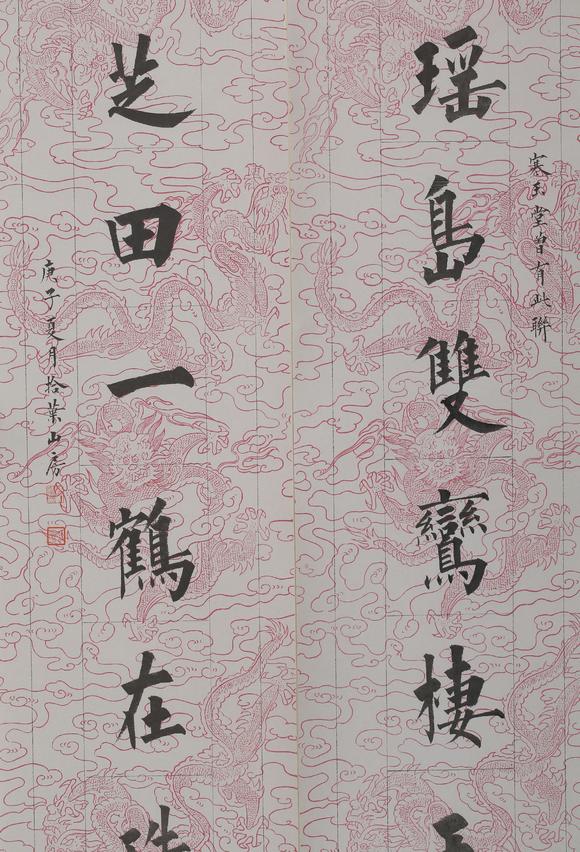 寒玉堂曾有此聯
瑶島雙鸞棲
芝田一鶴在
庚子夏月拾葉山房